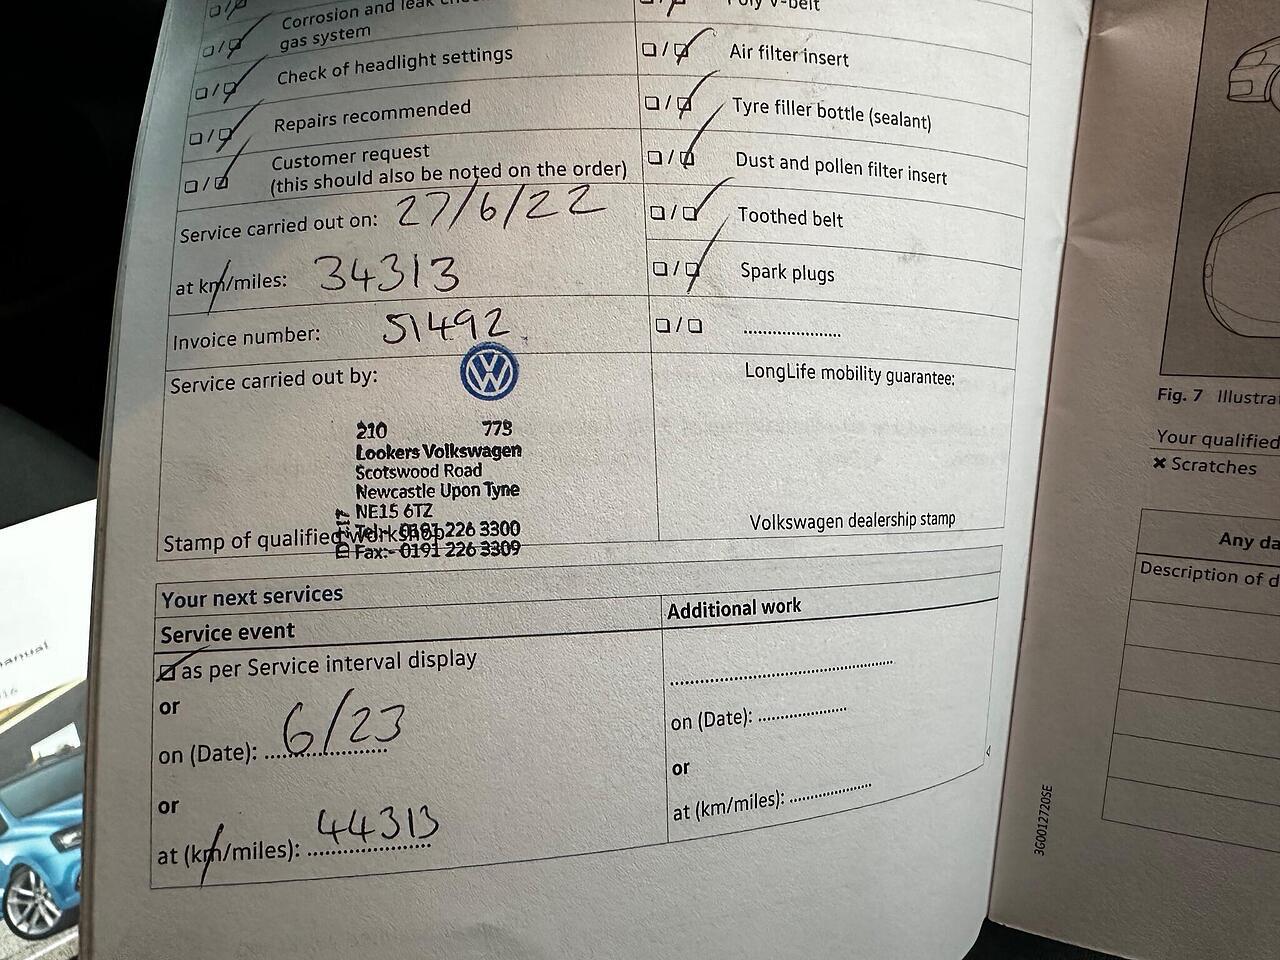 Corrosion and leak
gas system
Check of headlight settings
Repairs recommended
Customer request
(this should also be noted on the order)
Service carried out on: 27/6/22
at km/miles: 34313
Invoice number: 51492
Service carried out by:
210 773
Lookers Volkswagen
Scotswood Road
Newcastle Upon Tyne
NE15 6TZ
Tel:- 0191 226 3300
Fax:- 0191 226 3309
Stamp of qualified workshop
Poly V-belt
Air filter insert
Tyre filler bottle (sealant)
Dust and pollen filter insert
Toothed belt
Spark plugs
....................
LongLife mobility guarantee:
Volkswagen dealership stamp
Your next services
Service event
as per Service interval display
or
on (Date): 6/23
or
at (km/miles): 44313
Additional work
on (Date): ..................
or
at (km/miles): ................
Fig. 7 Illustra
Your qualified
× Scratches
Any da
Description of d
3G0012720SE
anual
16